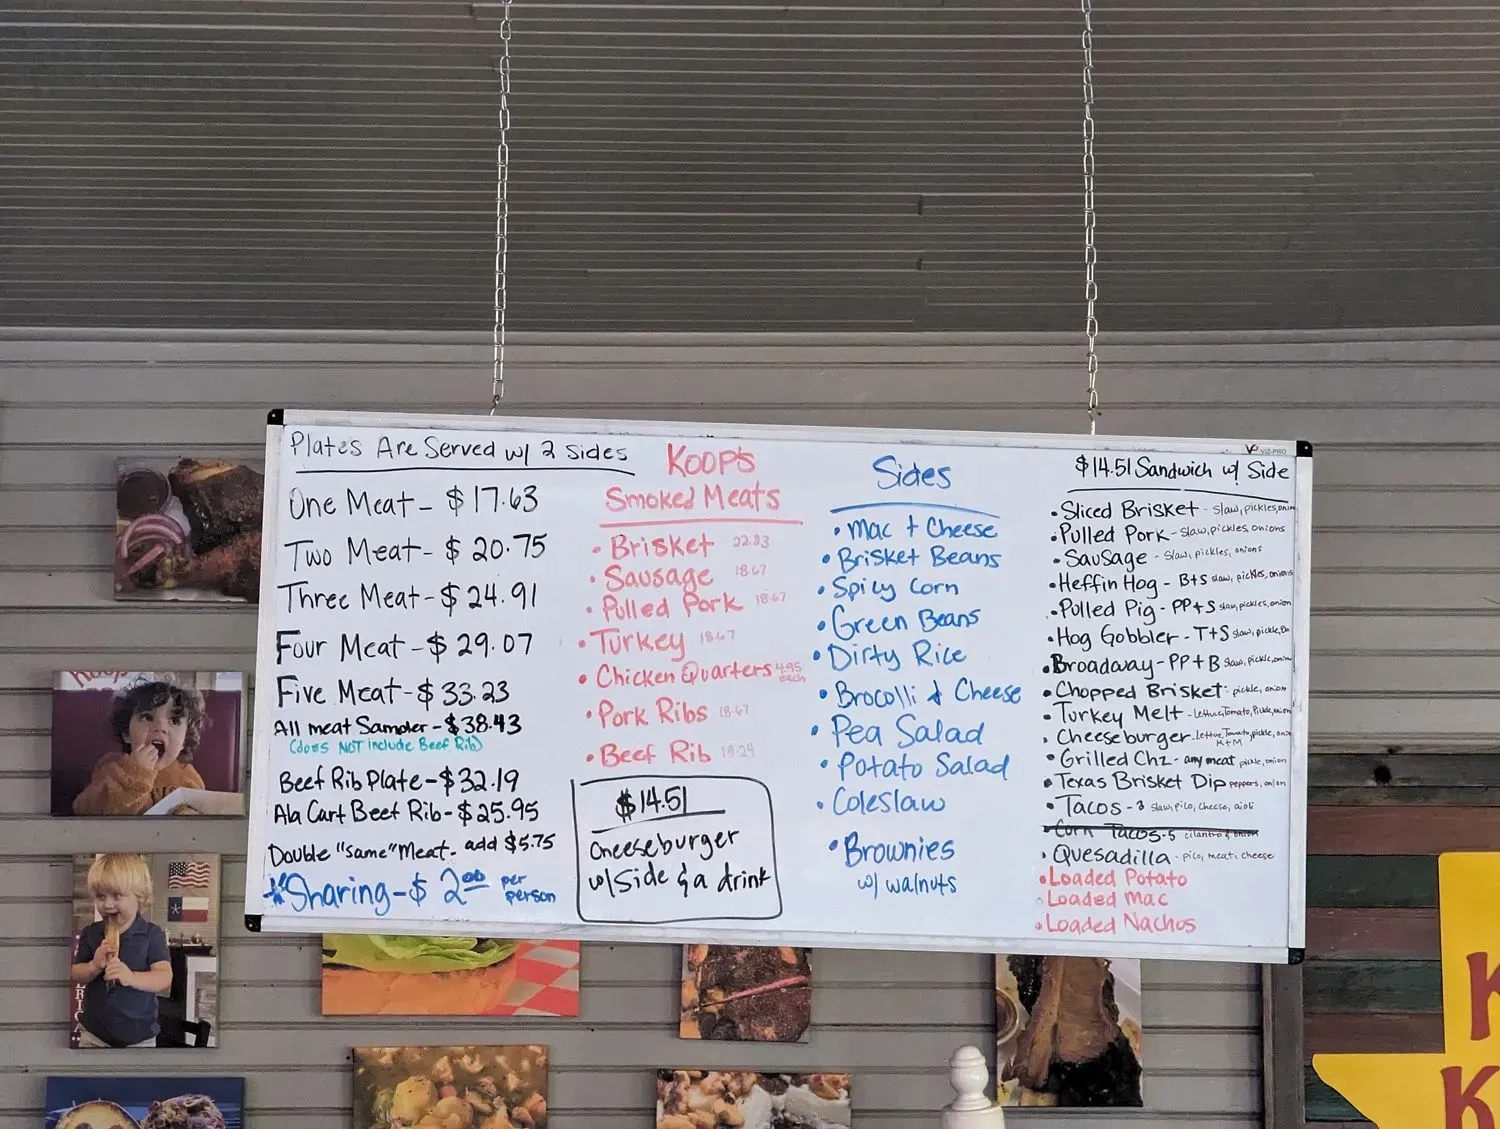 Plates Are Served w/ 2 sides
One Meat - $17.63
Two Meat - $20.75
Three Meat - $24.91
Four Meat - $29.07
Five Meat - $33.23
All meat Sampler - $38.43
(does NOT include Beef Rib)
Beef Rib Plate - $32.19
Ala Cart Beef Rib - $25.95
Double "same" Meat - add $5.75
*Sharing - $2.00 per person
Koop's
Smoked Meats
• Brisket 22.83
• Sausage 18.67
• Pulled Pork 18.67
• Turkey 18.67
• Chicken Quarters 4.95 each
• Pork Ribs 18.67
• Beef Rib
$14.51
Cheeseburger
w/ Side & a drink
Sides
• Mac + Cheese
• Brisket Beans
• Spicy Corn
• Green Beans
• Dirty Rice
• Brocolli & Cheese
• Pea Salad
• Potato Salad
• Coleslaw
• Brownies
w/ walnuts
VIZ-PRO
$14.51 Sandwich w/ Side
• Sliced Brisket - slaw, pickles, onion
• Pulled Pork - slaw, pickles, onions
• Sausage - slaw, pickles, onions
• Heffin Hog - B+S slaw, pickles, onions
• Pulled Pig - PP+S slaw, pickles, onion
• Hog Gobbler - T+S slaw, pickle, On
• Broadway - PP+B slaw, pickle, onion
• Chopped Brisket - pickle, onion
• Turkey Melt - Lettuce, Tomato, Pickle, onion
• Cheeseburger - Lettuce, Tomato, pickle, onion
K+M
• Grilled Chz - any meat pickle, onion
• Texas Brisket Dip peppers, onion
• Tacos - 3 slaw, pico, cheese, aioli
• Corn Tacos - 5 cilantro & onion
• Quesadilla - pico, meat, cheese
• Loaded Potato
• Loaded Mac
• Loaded Nachos
Koop's
K
K